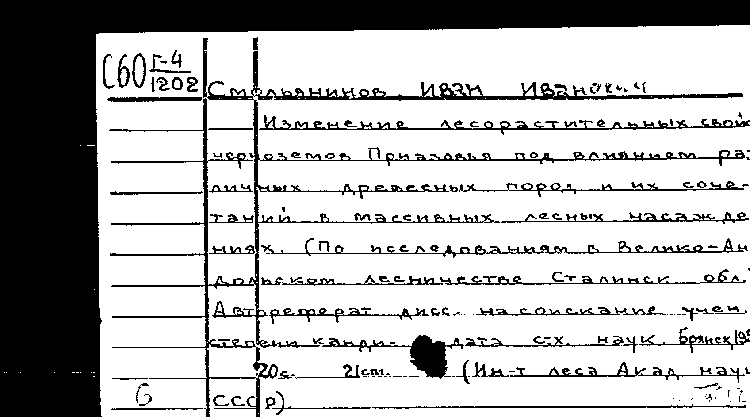 С60 Г-4/1202
Смольянинов, Иван Иванович
Изменение лесорастительных свой
черноземов Приазовья под влиянием раз
личных древесных пород и их соче-
таний в массивных лесных насажде
ниях. (По исследованиям в Велико-Ан
дольском лесничестве Сталинск обл.
Автореферат дисс. на соискание учен.
степени канди- дата с-х. наук. Брянск, 195
20с. 21см. (Ин-т леса Акад наук
6 СССР).